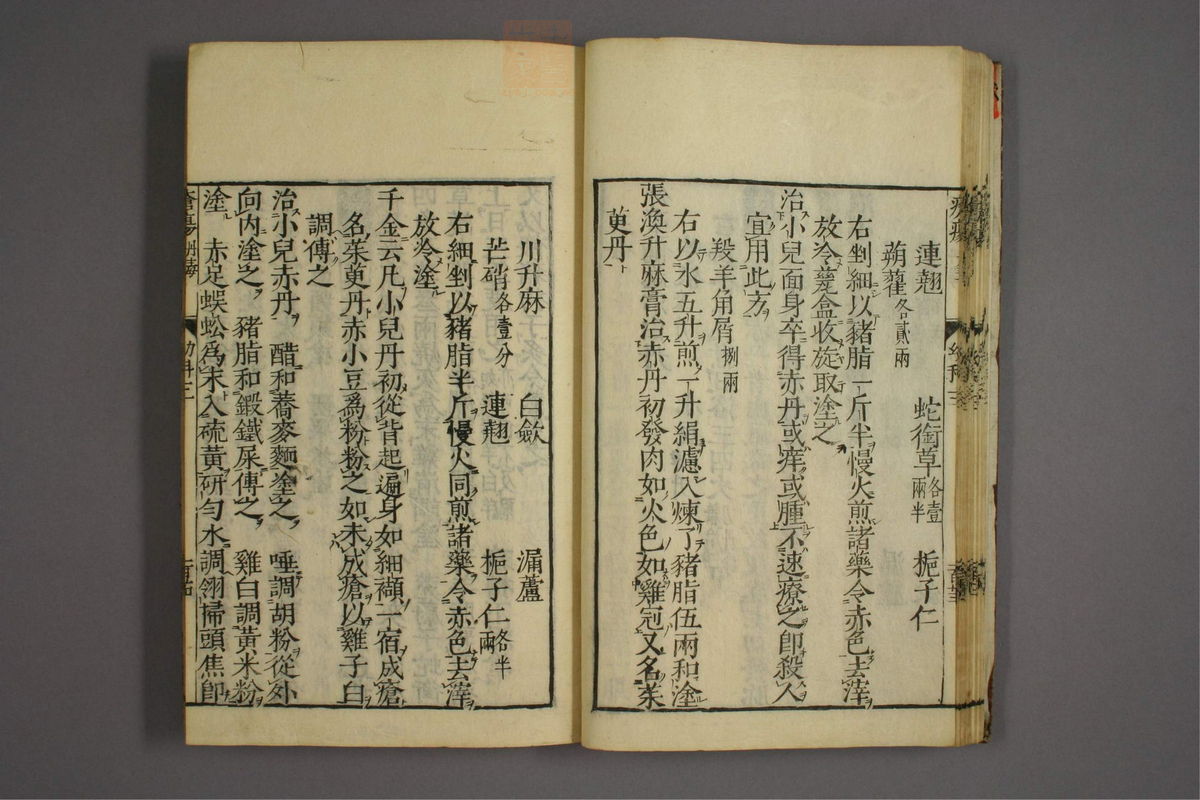 連翹 蛇銜草各壹兩半 梔子仁
蒴藋各貳兩
右剉細以豬脂一斤半慢火煎諸藥令赤色去滓
放冷甆盒收旋取塗之
治小兒面身卒得赤丹或痒或腫不速療之卽殺人
宜用此方
羖羊角屑捌兩
右以水五升煎一升絹濾入煉了豬脂伍兩和塗
張渙升麻膏治赤丹初發肉如火色如雞冠又名茱
萸丹
川升麻 白歛 漏蘆
芒硝各壹分 連翹 梔子仁各半兩
右細剉以豬脂半斤慢火同煎諸藥令赤色去滓
放冷塗
千金云凡小兒丹初從背起遍身如細纈一宿成瘡
名茱萸丹赤小豆爲粉粉之如未成瘡以雞子白
調傅之
治小兒赤丹 醋和蕎麥麵塗之 唾調胡粉從外
向內塗之 豬脂和鍛鐵屎傅之 雞白調黃米粉
塗 赤足蜈蚣爲末入硫黃研勻水調翎掃頭焦卽